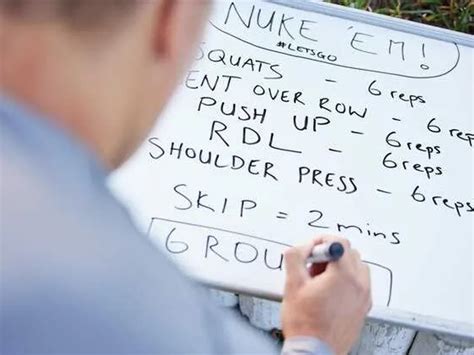 NUKE 'EM!
#LETSGO
SQUATS - 6 reps
ENT OVER ROW - 6 rep
PUSH UP - 6 reps
RDL - 6 reps
SHOULDER PRESS - 6 reps
SKIP = 2 mins
6 ROU